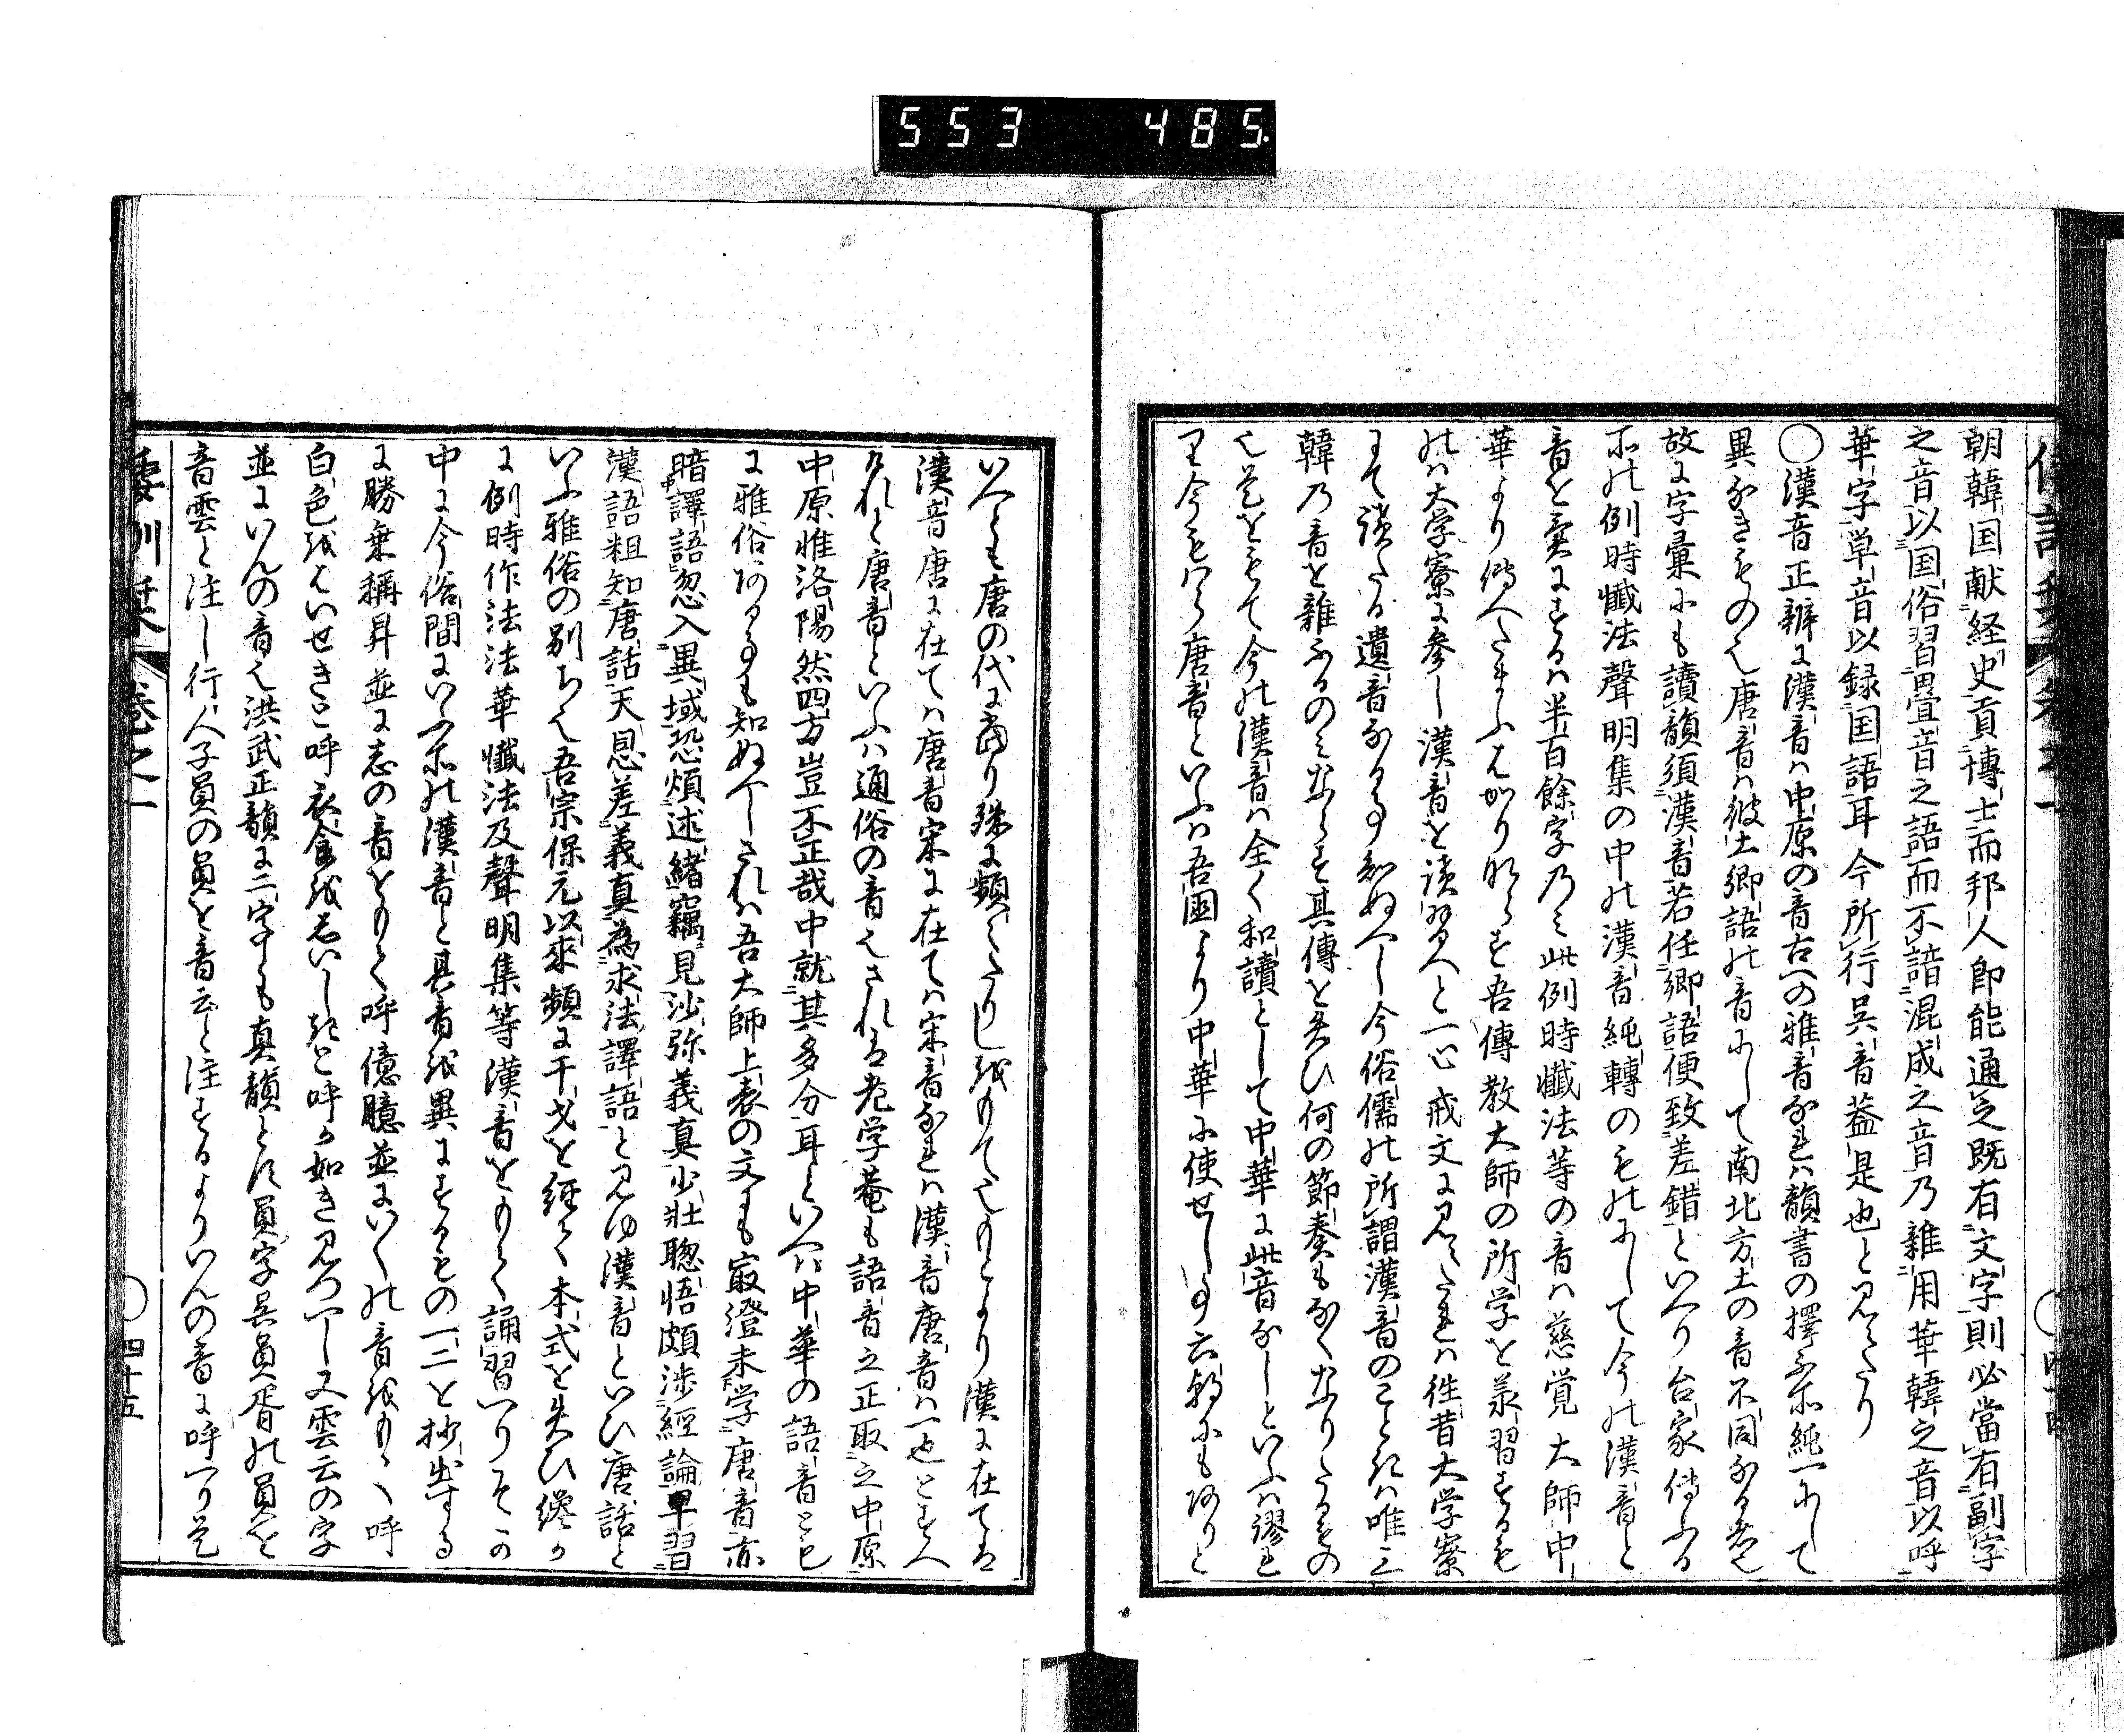 553 485
朝韓国献経史貢博士而邦人即能通之既有文字則必當有副字
之音以国俗習畳音之語而不諳混成之音乃雜用華韓之音以呼
華字単音以録国語耳今所行呉音葢是也と見えたり
〇漢音正辨に漢音ハ中原の音古への雅音なれハ韻書の擇ふ所純一にして
異なきものこ唐音ハ彼土郷語の音にして南北方土の音不同なる者也
故に字彙にも讀韻須漢音若任郷語便致差錯といへり台家傳ふる
所の例時懺法聲明集の中の漢音純轉のものにして今の漢音と
音を異にするハ半百餘字乃ミ此例時懺法等の音ハ慈覚大師中
華より傳へたまふはかりならす吾傳教大師の所学を承習するも
のハ大学寮に参し漢音を讀習へと一心戒文に見えたれハ徃昔大学寮
にて讀たる遺音なる事知ぬへし今俗儒の所謂漢音のことハ唯三
韓乃音を雜ふるのミならす其傳を失ひ何の節奏もなくなりたるもの
也是をもて今の漢音ハ全く和讀として中華に此音なしといふハ謬れ
り今もハら唐音といふハ吾国より中華に使せし事六朝にもありと
いへとも唐の代に當り殊に頻へたりしをもて也もとより漢に在ては
漢音唐に在てハ唐音宋に在てハ宋音なれハ漢音唐音ハ一也とすへ
けれと唐音といふハ通俗の音也されは老学菴も語音之正取之中原
中原惟洛陽然四方豈不正哉中就其多分耳といへハ中華の語音とも
に雅俗ある事も知ぬへしされハ吾大師上表の文にも最澄未学唐音亦
暗譯語忽入異域恐煩述緒竊見沙弥義真少壮聰悟頗渉經論早習
漢語粗知唐話天恩差義真為求法譯語と見ゆ漢音といひ唐話と
いふ雅俗の別ちも吾宗保元以来頻に干戈を經て本式を失ひ纔か
に例時作法法華懺法及聲明集等漢音をもて誦習へりその
中に今俗間にいふ所の漢音と其音を異にするもの一二を抄出する
に勝乗稱昇並に志の音をもて呼億臆並にいくの音をもて呼
白色をはいせきと呼衣食をいしよくと呼か如き見つへし又雲云の字
並にいんの音也洪武正韻に二字とも真韻とす員字呉員胥の員を
音雲と注し行人子員の員を音云と注するよりいんの音に呼へり是
倭訓栞 巻之一 〇四十五